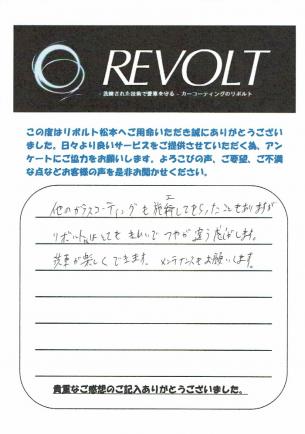 REVOLT
- 洗練された技術で愛車を守る - カーコーティングのリボルト
この度はリボルト松本へご用命いただき誠にありがとうござい
ました。日々より良いサービスをご提供させていただく為、アン
ケートにご協力をお願いします。よろこびの声、ご要望、ご不満
な点などお客様の声を是非お聞かせください。
他のガラスコーティングも施工してもらったこともありますが
リボルトはとてもきれいでつやが違う感じがします。
洗車が楽しくできます。メンテナンスもお願いします。
貴重なご感想のご記入ありがとうございました。